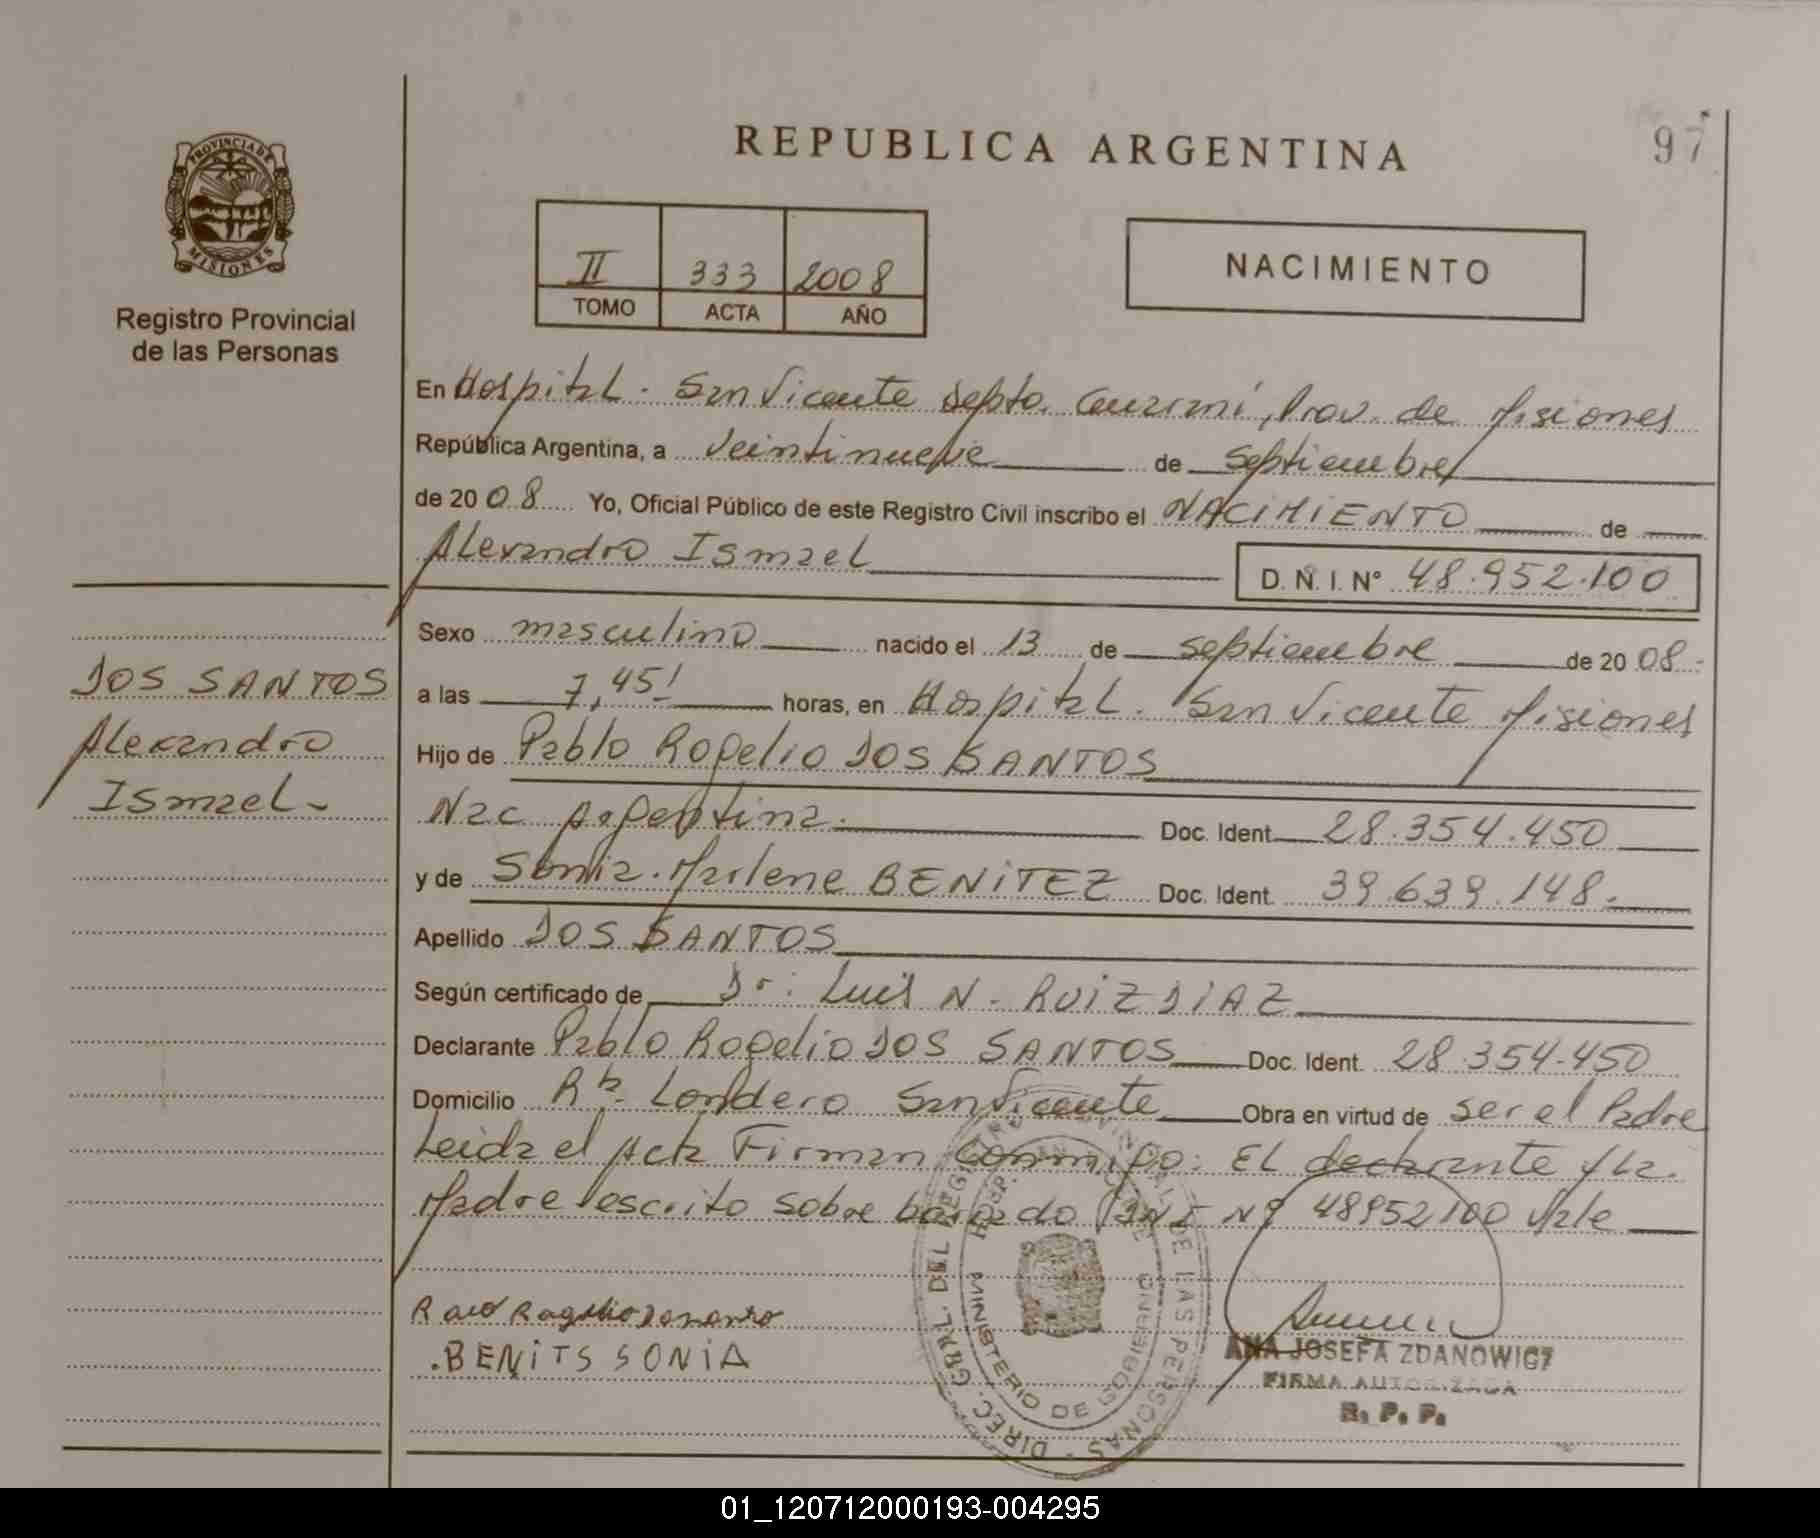 REPUBLICA ARGENTINA
97
PROVINCIA DE
MISIONES
Registro Provincial
de las Personas
II 333 2008
TOMO ACTA AÑO
NACIMIENTO
En Hospital. San Vicente Depto. Guaraní, Prov. de Misiones
República Argentina, a veintinueve de septiembre
de 2008 Yo, Oficial Público de este Registro Civil inscribo el NACIMIENTO de
Alexandro Ismael D.N.I. N° 48.952.100
Sexo masculino nacido el 13 de septiembre de 2008.
DOS SANTOS
Alexandro
Ismael-
a las 7,45! horas, en Hospital. San Vicente Misiones
Hijo de Pablo Rogelio DOS SANTOS
Nac Argentina. Doc. Ident. 28.354.450
y de Sonia. Marlene BENITEZ Doc. Ident. 39.639.148.
Apellido DOS SANTOS
Según certificado de Dr: Luis N. RUIZ DIAZ
Declarante Pablo Rogelio DOS SANTOS Doc. Ident. 28.354.450
Domicilio Londero San Vicente Obra en virtud de ser el Padre
Leida el Acta Firman conmigo: EL declarante y la.
Madre escrito sobre borrado DNI Nº 48952100 Vale
Rogelio
.BENITS SONIA
DIREC. GRAL. DEL REGISTRO PROVINCIAL DE LAS PERSONAS
MINISTERIO DE GOBIERNO
ANA JOSEFA ZDANOWICZ
FIRMA AUTORIZADA
R. P. P.
01_120712000193-004295